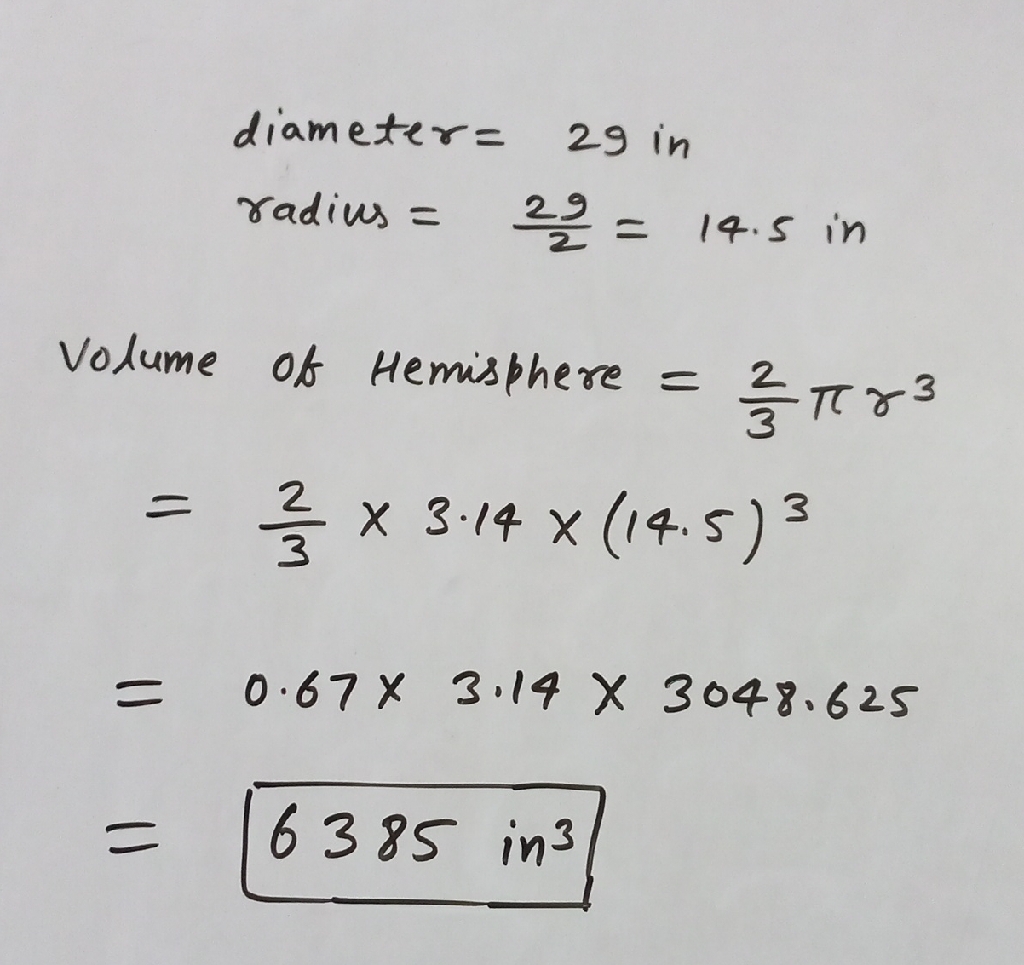 diameter = 29 in
radius = 29/2 = 14.5 in
Volume of Hemisphere = 2/3 π r³
= 2/3 x 3.14 x (14.5)³
= 0.67 x 3.14 x 3048.625
= 6385 in³